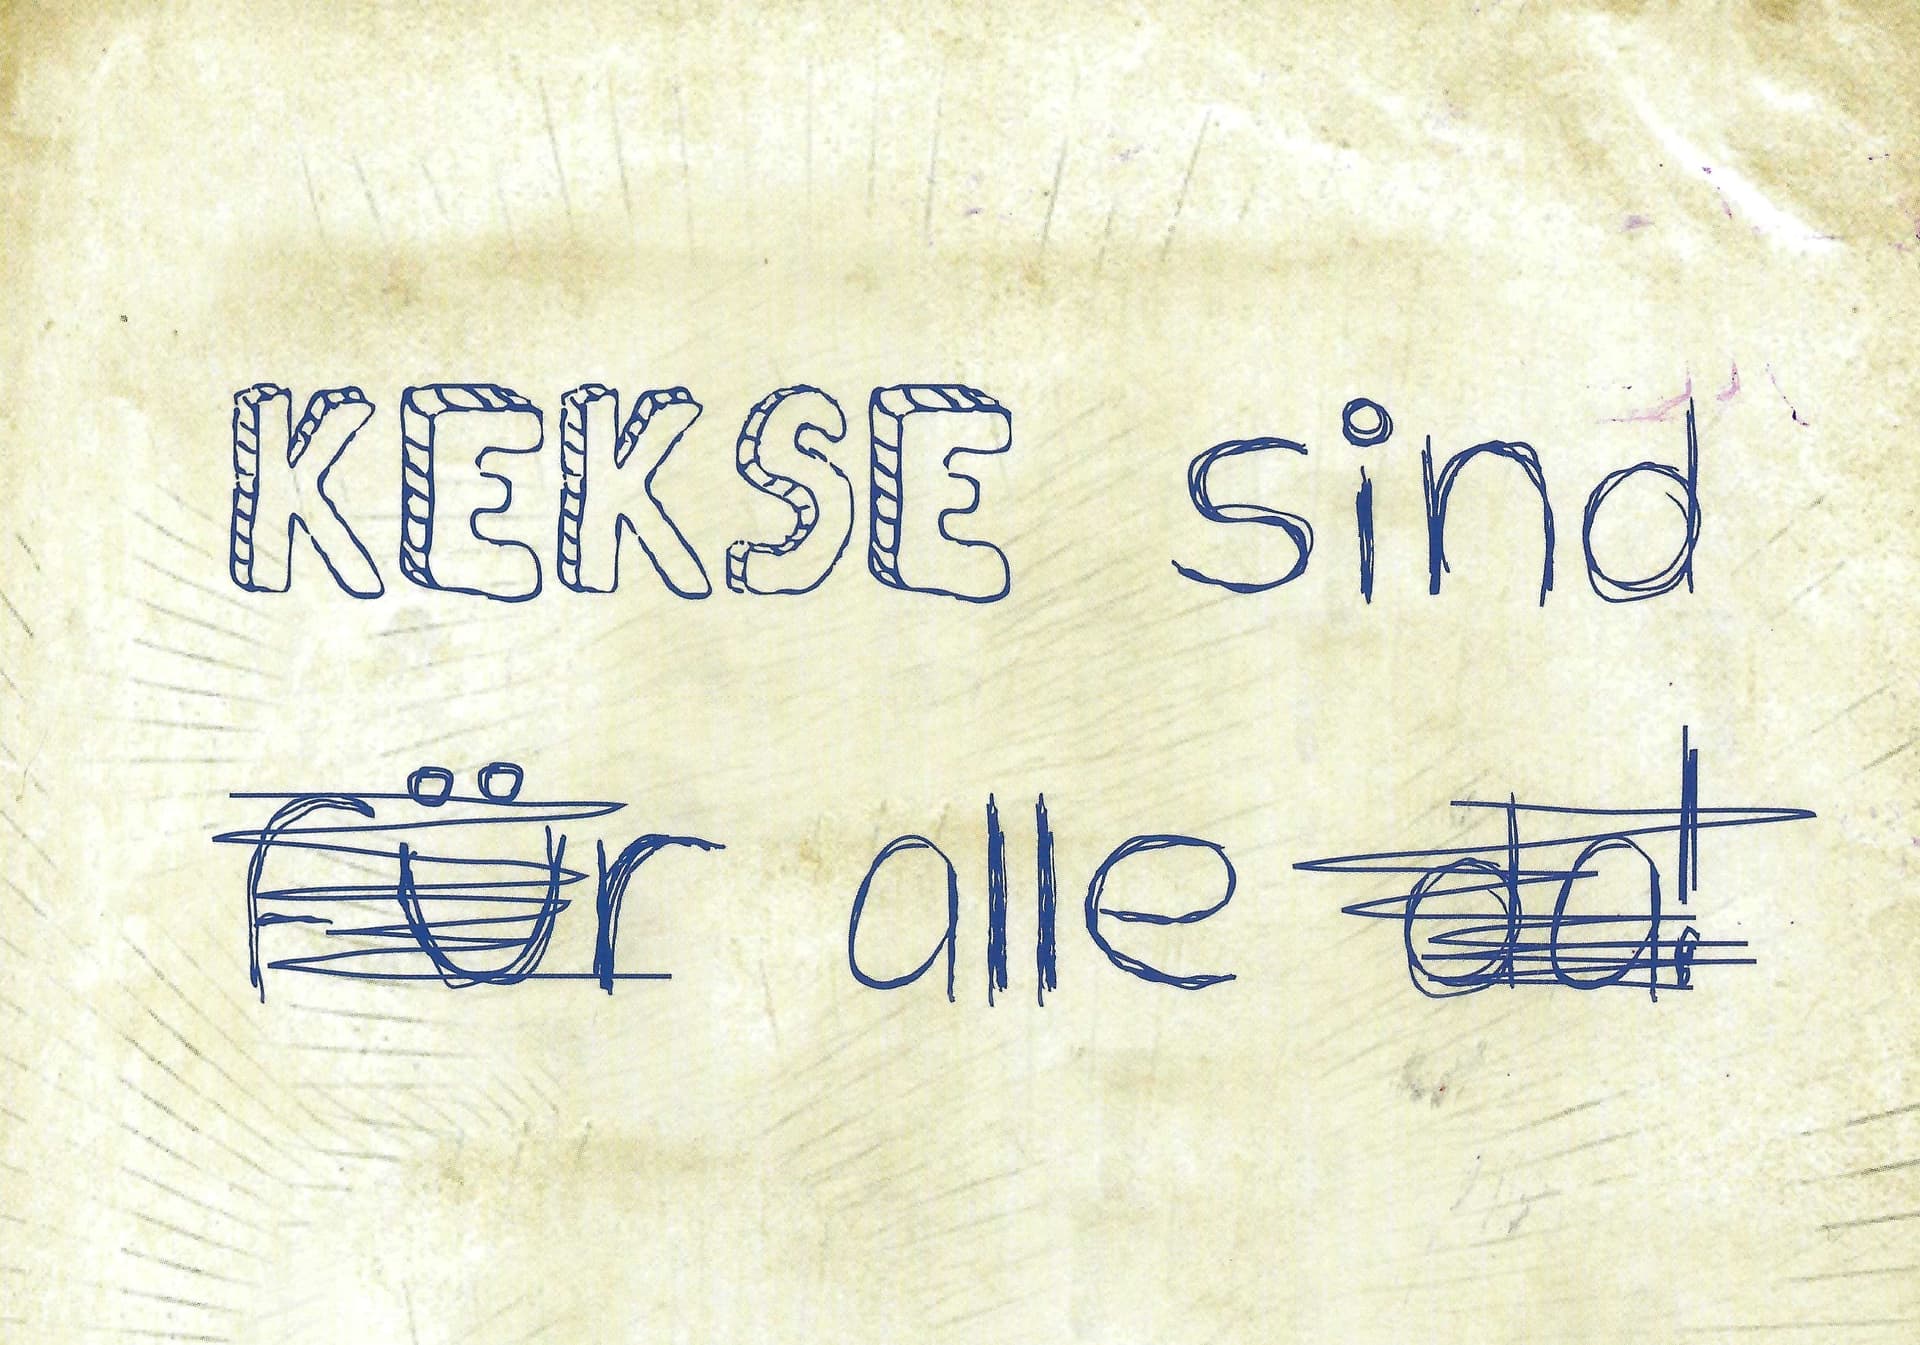 KEKSE sind
für alle da!